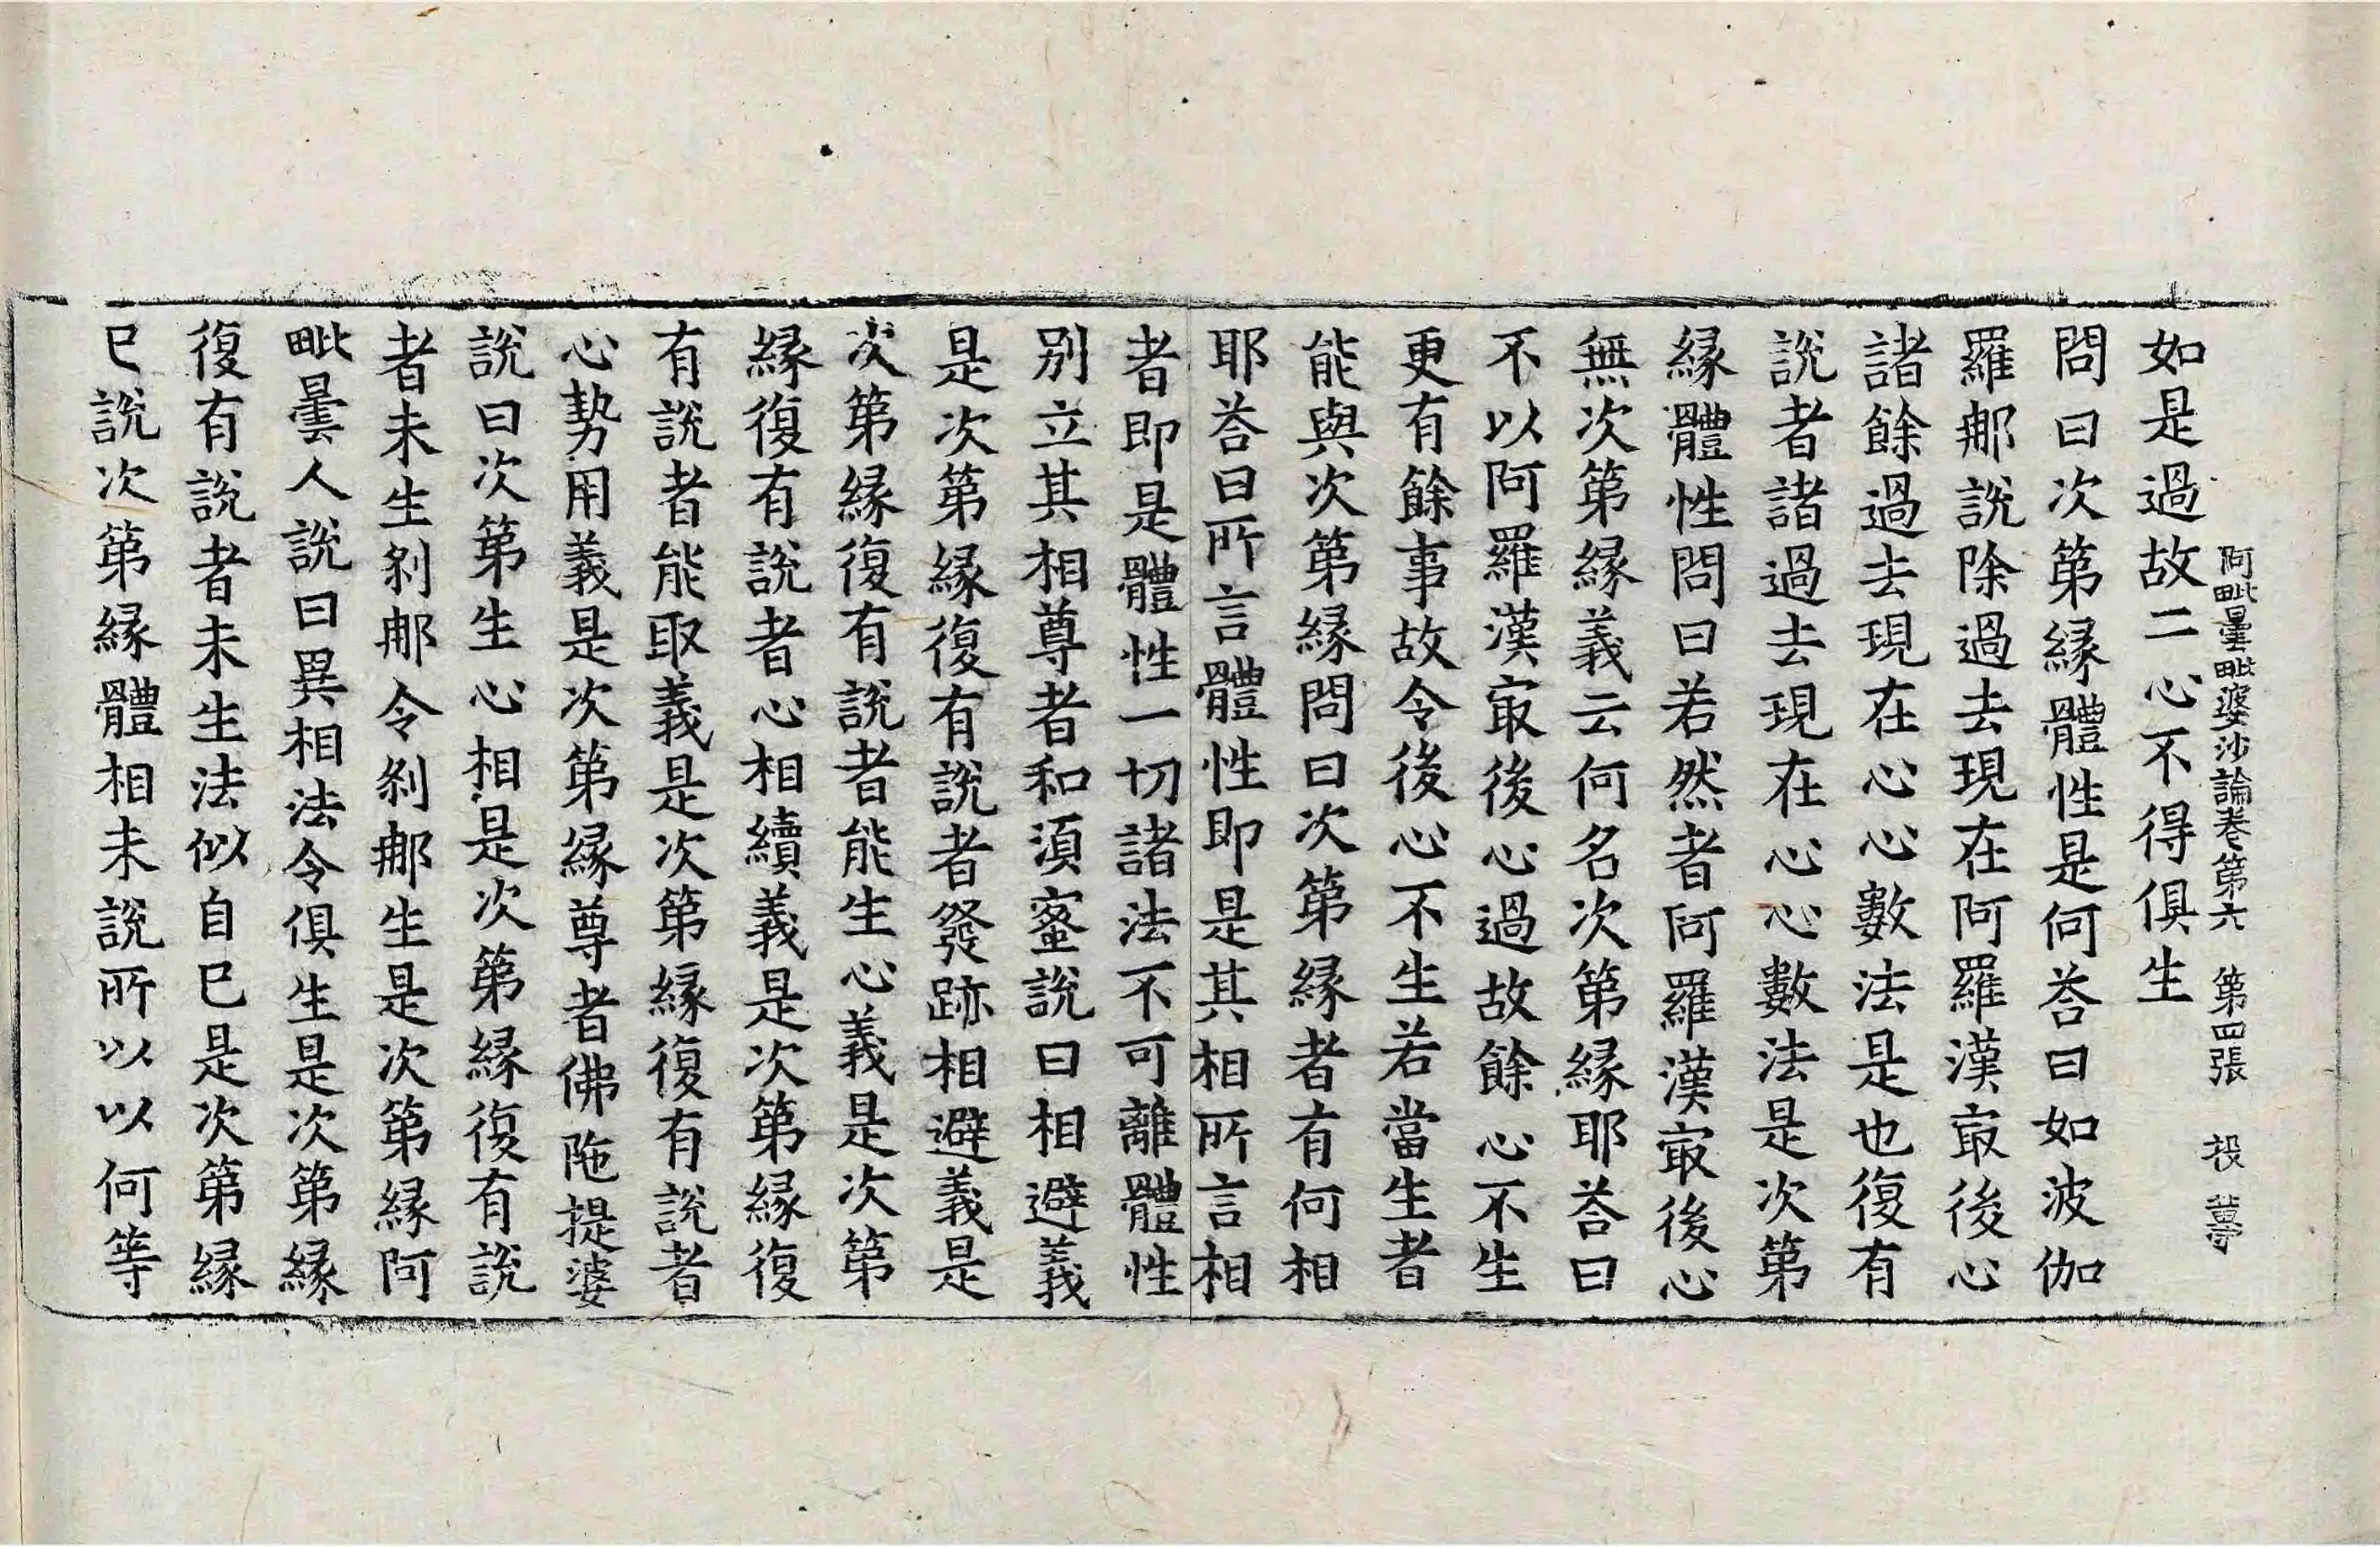 阿毗曇毗婆沙論卷第六　第四張　投
如是過故二心不得俱生
問曰次第緣體性是何荅曰如波伽
羅那說除過去現在阿羅漢冣後心
諸餘過去現在心心數法是也復有
說者諸過去現在心心數法是次第
緣體性問曰若然者阿羅漢冣後心
無次第緣義云何名次第緣耶荅曰
不以阿羅漢冣後心過故餘心不生
更有餘事故令後心不生若當生者
能與次第緣問曰次第緣者有何相
耶荅曰所言體性即是其相所言相
者即是體性一切諸法不可離體性
別立其相尊者和湏蜜說曰相避義
是次第緣復有說者發跡相避義是
次第緣復有說者能生心義是次第
緣復有說者心相續義是次第緣復
有說者能取義是次第緣復有說者
心勢用義是次第緣尊者佛陁提婆
說曰次第生心相是次第緣復有說
者未生剎那令剎那生是次第緣阿
毗曇人說曰異相法令俱生是次第緣
復有說者未生法似自已是次第緣
已說次第緣體相未說所以以何等